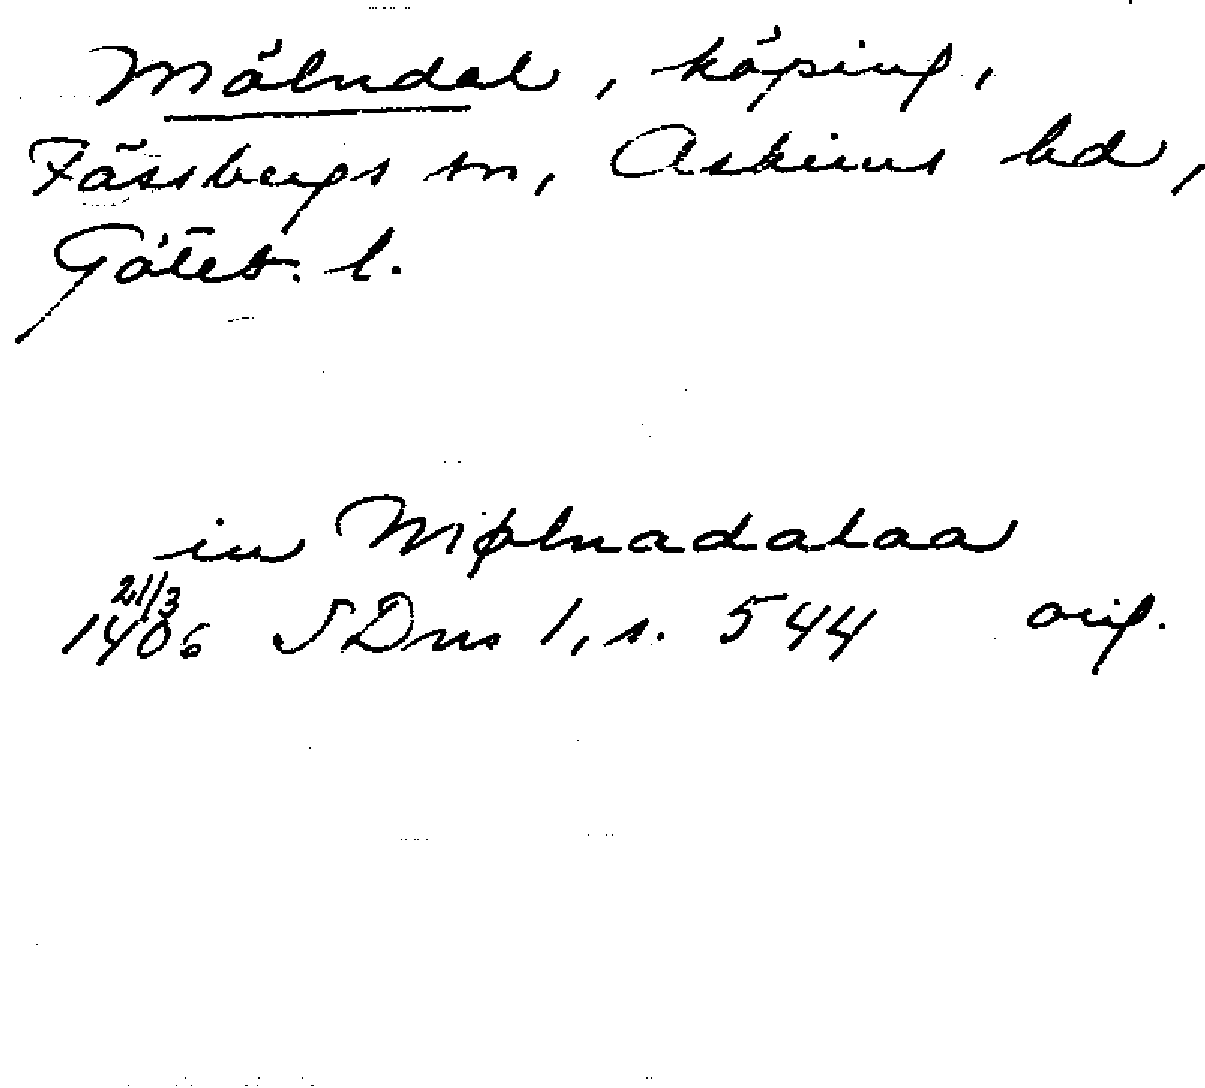 Mölndal, köping,
Fässbergs sn, Askims hd,
Göteb. l.
in Mølnadalaa
21/3
1406 SDns 1, s. 544 orig.